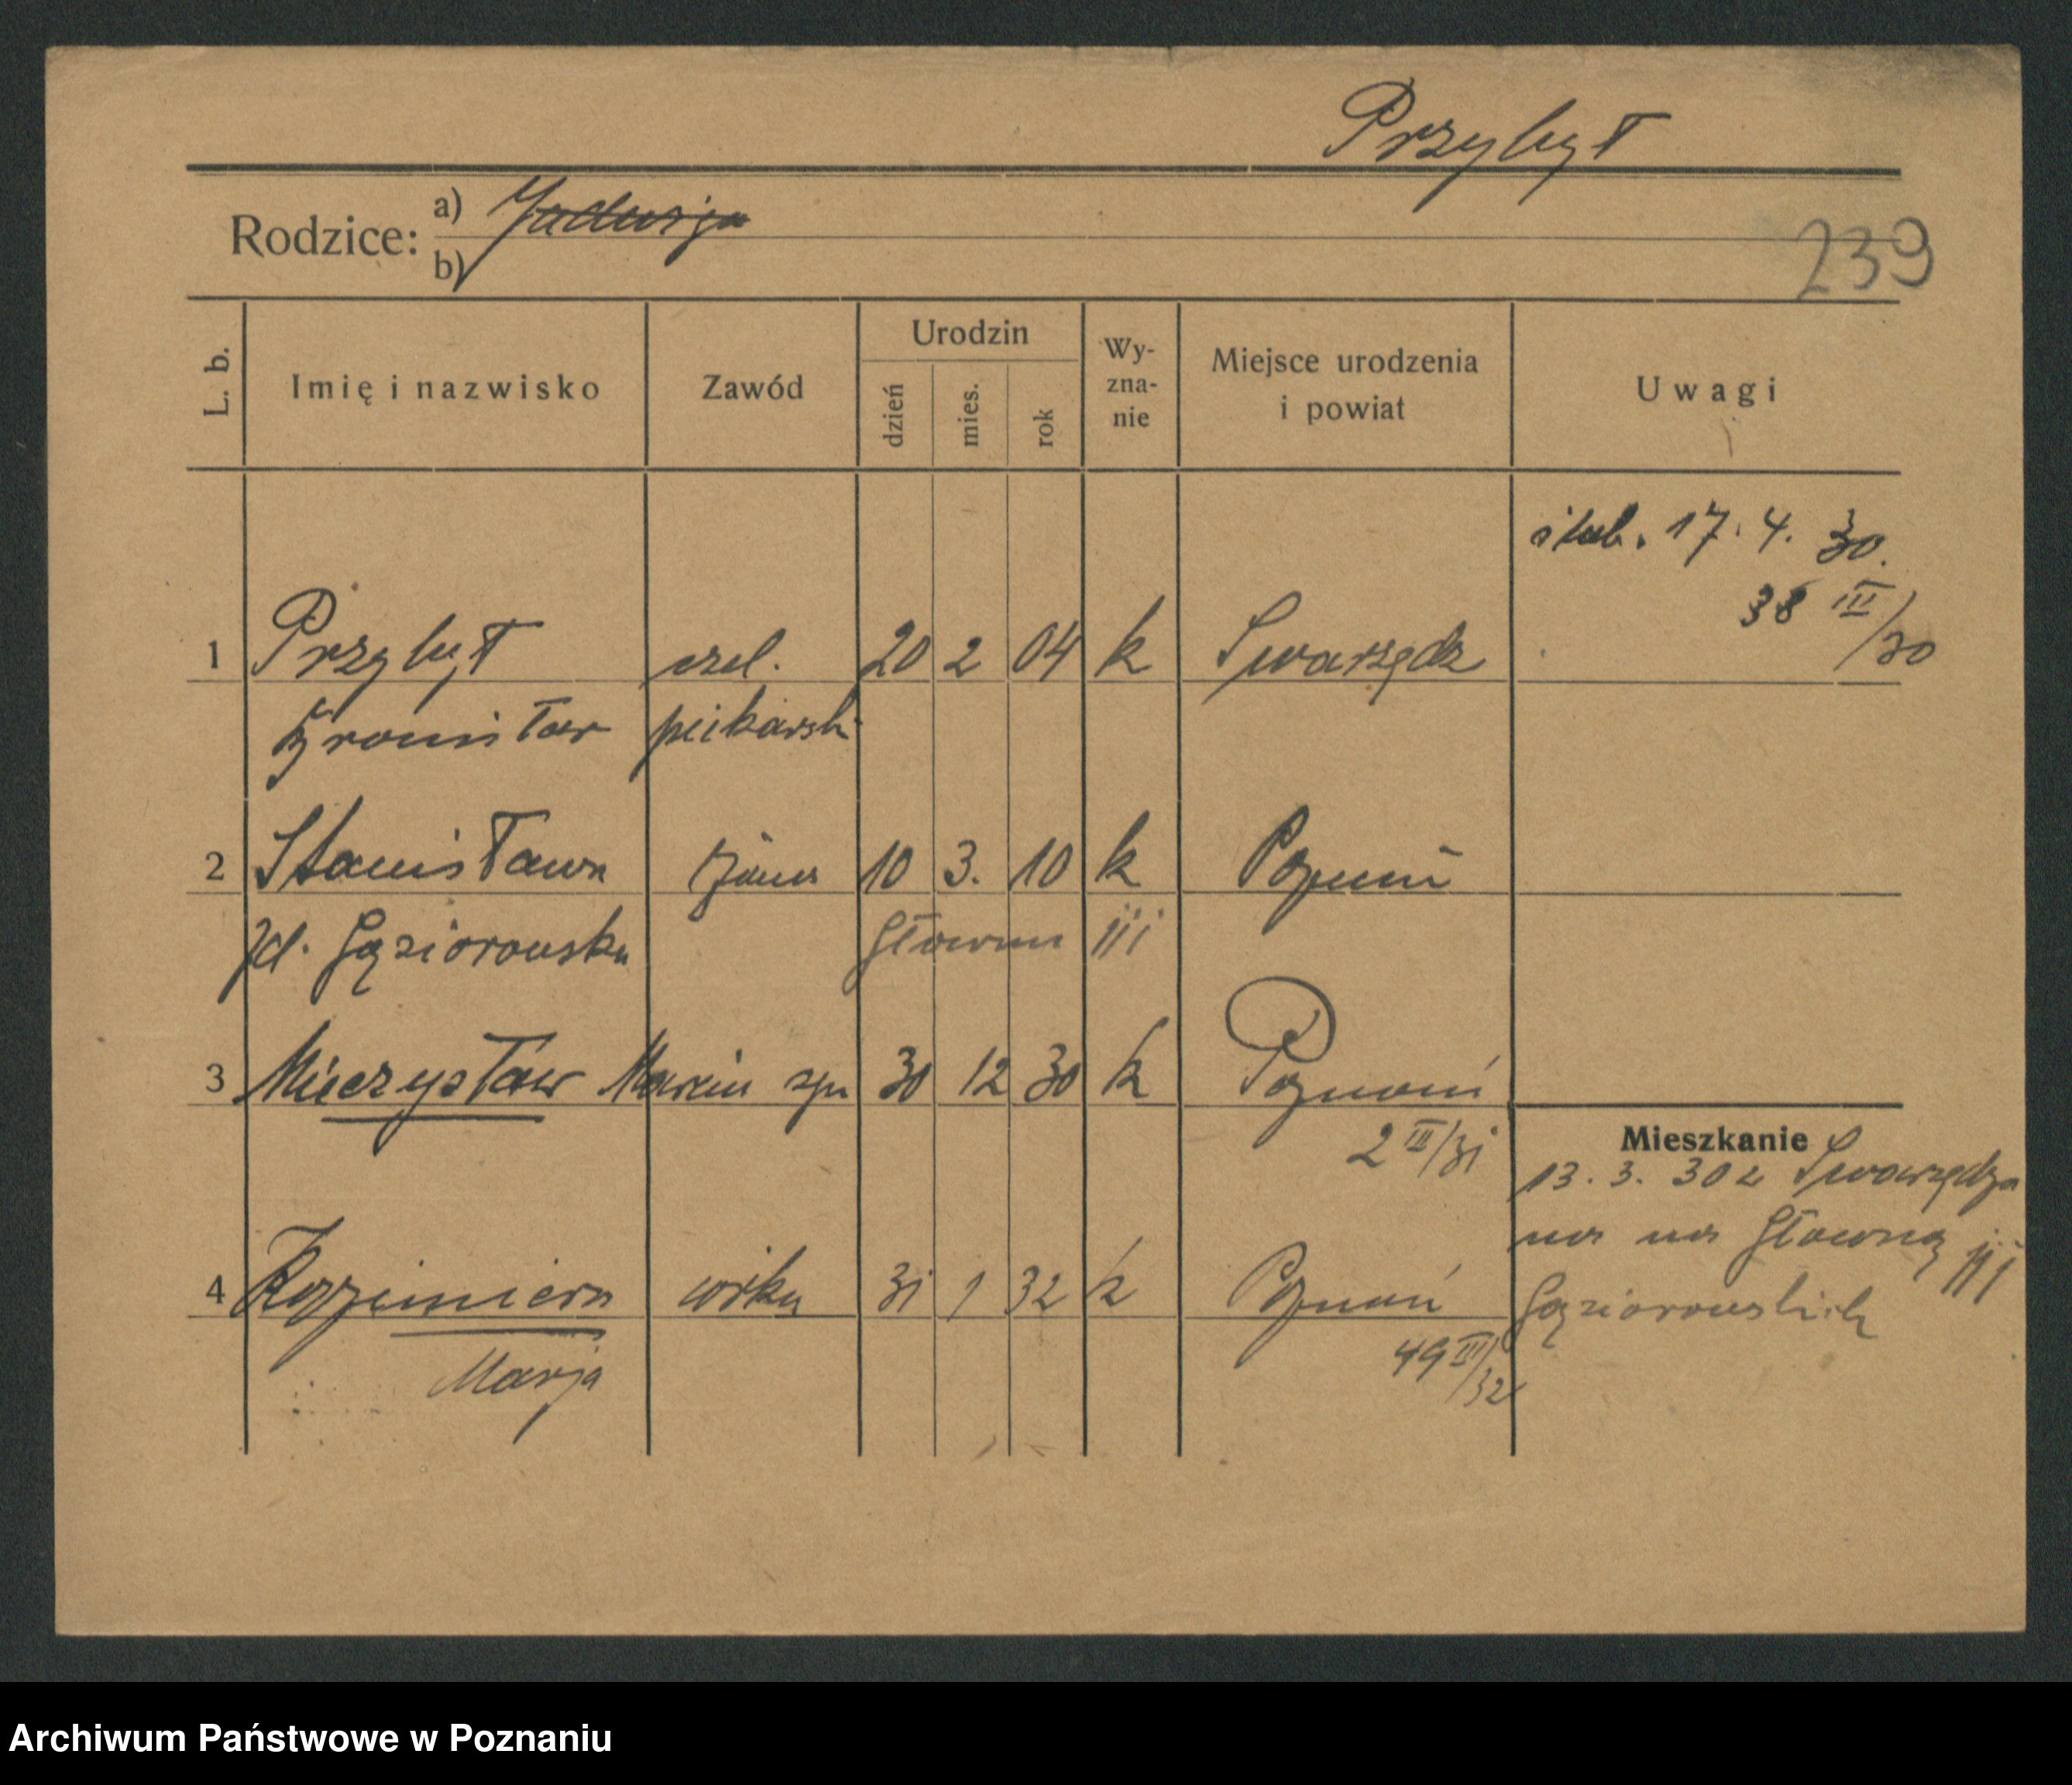 Przybył
Rodzice: a) Jadwiga
b)
239
L. b. Imię i nazwisko Zawód Urodzin dzień mies. rok Wy-zna-nie Miejsce urodzenia i powiat Uwagi
ślub. 17. 4. 30.
38 III/30
1 Przybył czel. 20 2 04 k Swarzędz
Bronisław piekarski
2 Stanisława żona 10 3. 10 k Poznań
zd. Gąsiorowska Główna III
3 Mieczysław Marcin syn 30 12 30 k Poznań
2 III/31
Mieszkanie
13. 3. 30 z Swarzędza
na Główną III
Gąsiorowskich
4 Kazimiera córka 31 1 32 k Poznań
49 III/32
Marja
Archiwum Państwowe w Poznaniu